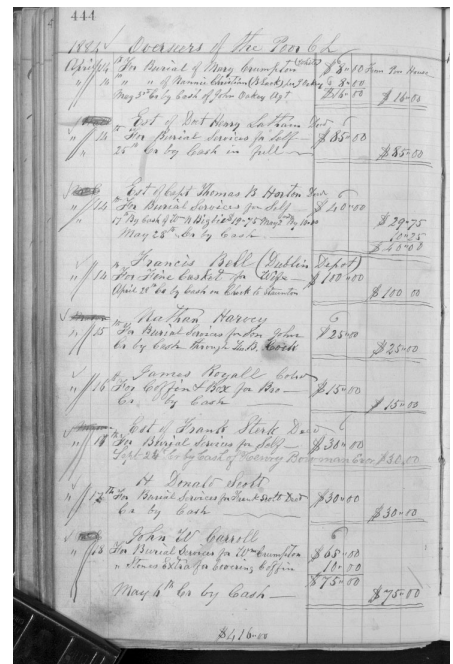 444
1885 Overseers of the Poor
April 14 th For Burial of Mary Crumpton $8-00 From Poor House
" 14 " " of Nannie Christian (Black) pr J Oakey 8-00
May 5th Cr by Cash of John Oakey Agt $16-00 $16-00
Est of Doct Henry Latham Decd
" 14 th For Burial Services for Self $85-00
" 25th Cr by Cash in full $85-00
Est of Capt Thomas B. Horton Decd
" 14 th For Burial Services for Self $40-00
17th By Cash 19-75 May 2nd By 10-00 $29-75
May 28th Cr by Cash 10-25
$40-00
Francis Bell (Dublin Depot)
" 14 For Fine Casket for Wife $100-00
April 28th Cr by Cash in Check to Staunton $100 00
Nathan Harvey
" 15 For Burial Services for Son John $25-00
Cr by Cash through B. Cook $25-00
James Royall Cold
" 16 th For Coffin & Box for Bro $15-00
Cr by Cash $15-00
Est of Frank Sterk Decd
" 18 th For Burial Services for Self $30-00
Sept 24th Cr by Cash of Bowman $30.00
H Donald Scott
" 17th For Burial Services for Scott Decd $30-00
Cr by Cash $30-00
John W Carroll
" 18 For Burial Services for Wm Crumpton $65-00
" Stones Extra for Covering Coffin 10-00
$75-00
May 6th Cr by Cash $75-00
$416-00